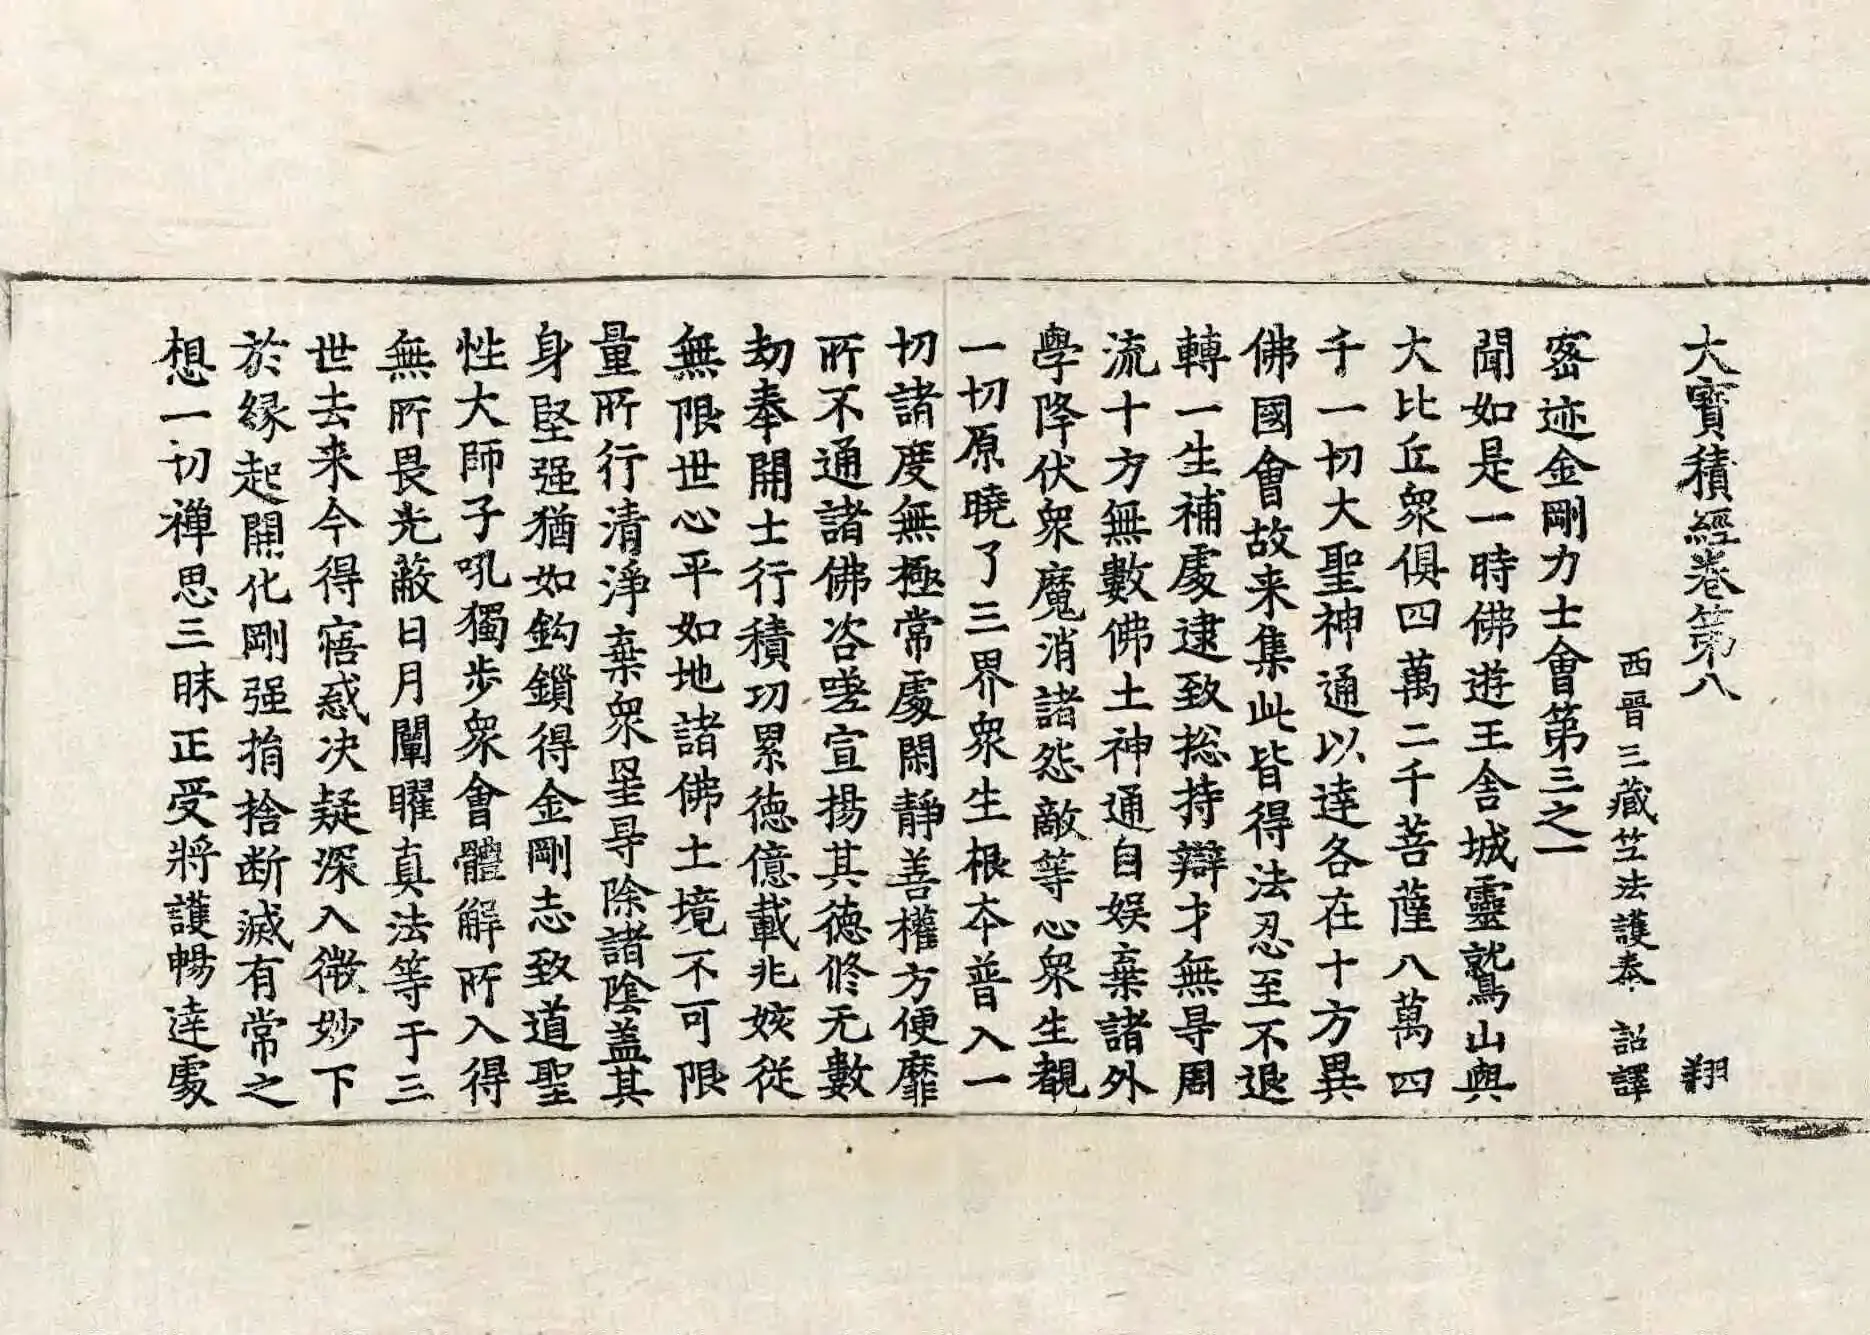 大寶積經卷第八　翔
西晉三藏竺法護奉　詔譯
密迹金剛力士會第三之一
聞如是一時佛遊王舍城靈鷲山與
大比丘衆俱四萬二千菩薩八萬四
千一切大聖神通以達各在十方異
佛國會故来集此皆得法忍至不退
轉一生補處逮致捴持辯才無㝵周
流十方無數佛土神通自娱棄諸外
學降伏衆魔消諸怨敵等心衆生覩
一切原曉了三界衆生根夲普入一
切諸度無極常處閑靜善權方便靡
所不通諸佛咨嗟宣揚其徳修无數
劫奉開士行積功累徳億載兆姟從
無限世心平如地諸佛土境不可限
量所行清淨棄衆罣㝵除諸陰盖其
身堅强猶如鈎鎖得金剛志致道聖
性大師子吼獨步衆會體解所入得
無所畏光蔽日月闡曜真法等于三
世去来今得寤惑决疑深入微妙下
於縁起開化剛强捐捨断滅有常之
想一切禪思三昧正受將護暢達處